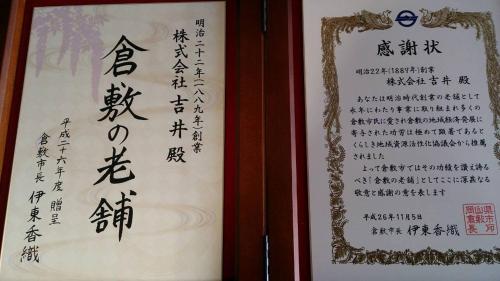 明治二十二年（一八八九年）創業
株式会社 吉井 殿
倉敷の老舗
平成二十六年度 贈呈
倉敷市長 伊東香織
感謝状
明治22年(1889年)創業
株式会社 吉井 殿
あなたは明治時代創業の老舗として
永年にわたり事業に取り組まれ多くの
倉敷市民に愛され倉敷の地域経済発展に
寄与された功労は極めて顕著であると
くらしき地域資源活性化協議会から推薦
されました
よって倉敷市ではその功績を讃え誇る
べき「倉敷の老舗」としてここに深甚なる
敬意と感謝の意を表します
平成26年11月5日
倉敷市長 伊東香織
岡山県
倉敷市
長印